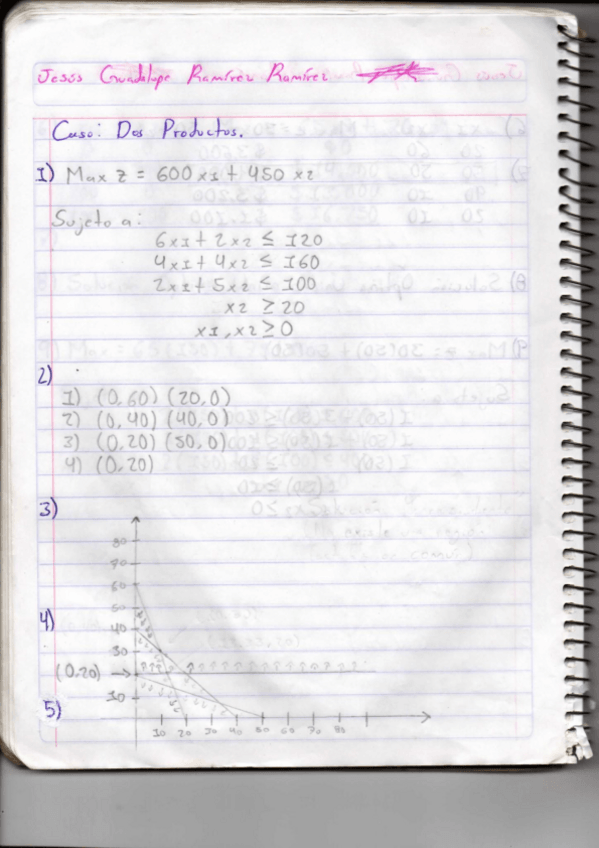 Jesús Guadalupe Ramírez Ramírez
Caso: Dos Productos.
1) Max Z = 600 x1 + 450 x2
Sujeto a:
6x1 + 2x2 ≤ 120
4x1 + 4x2 ≤ 160
2x1 + 5x2 ≤ 100
x2 ≥ 20
x1, x2 ≥ 0
2)
1) (0,60) (20,0)
2) (0,40) (40,0)
3) (0,20) (50,0)
4) (0,20)
3)
80
70
60
50
4)
40
30
(0,20)
10
5)
10 20 30 40 50 60 70 80